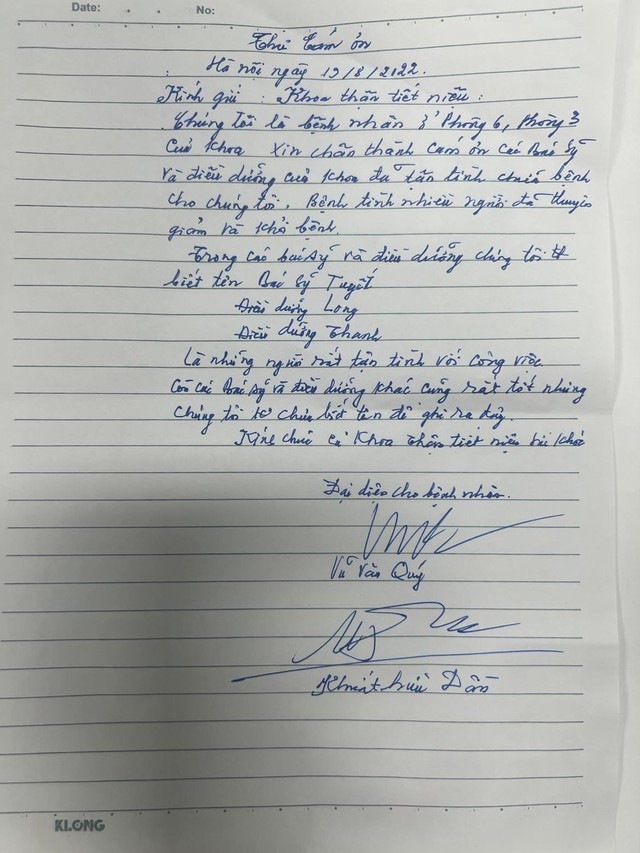 Date: No:
Thư Cảm ơn
Hà nội ngày 19/8/2022.
Kính gửi : Khoa thận tiết niệu :
Chúng tôi là bệnh nhân ở Phòng 6, Phòng 3
Của Khoa Xin chân thành cảm ơn các Bác Sỹ
và điều dưỡng của Khoa đã tận tình chữa bệnh
cho chúng tôi. Bệnh tình nhiều người đã thuyên
giảm và khỏi bệnh.
Trong các bác sỹ và điều dưỡng chúng tôi
biết tên Bác Sỹ Tuyết
Điều dưỡng Long
Điều dưỡng Thanh
Là những người rất tận tình với công việc
Còn các Bác sỹ và điều dưỡng khác cũng rất tốt nhưng
chúng tôi chưa biết tên để ghi ra đây.
Kính chúc cả Khoa thận tiết niệu
Đại diện cho bệnh nhân.
Vũ Văn Quý
Khuất hữu Dần
KLONG